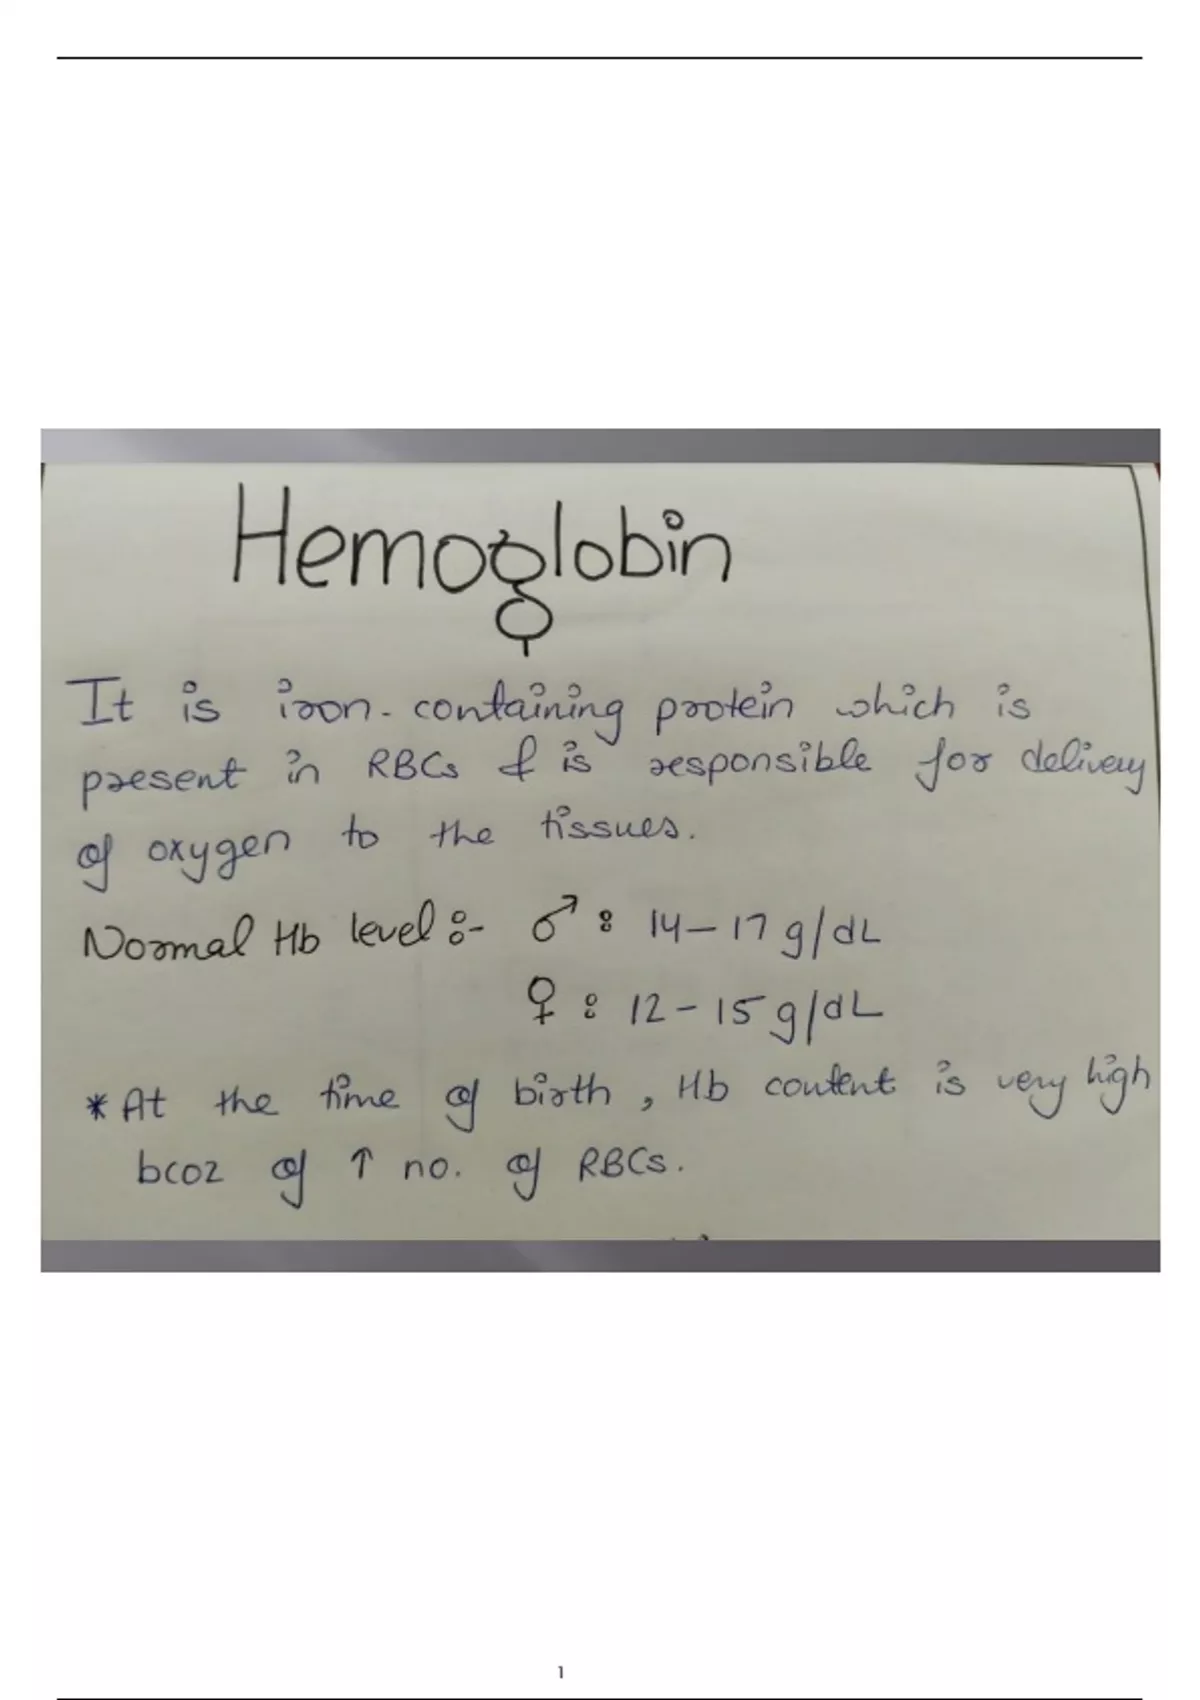 Hemoglobin
It is iron-containing protein which is
present in RBCs & is responsible for delivery
of oxygen to the tissues.
Normal Hb level :- ♂ : 14-17 g/dL
♀ : 12-15 g/dL
* At the time of birth, Hb content is very high
bcoz of ↑ no. of RBCs.
1